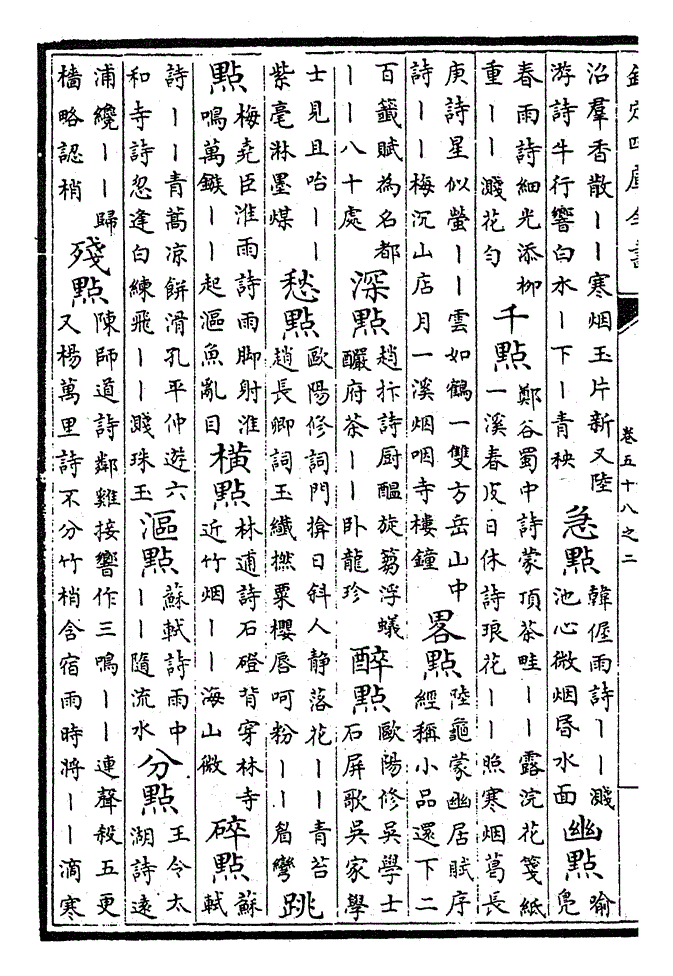 欽定四庫全書
卷五十八之二
沿羣香散丨丨寒烟玉片新又陸
游詩牛行響白水丨下丨青秧
急點
韓偓雨詩丨丨濺
池心微烟昏水面
幽點
喻
鳧
春雨詩細光添柳
重丨丨濺花勻
千點
鄭谷蜀中詩蒙頂茶畦丨丨露浣花箋紙
一溪春皮日休詩琅花丨丨照寒烟葛長
庚詩星似螢丨丨雲如鶴一雙方岳山中
詩丨丨梅沉山店月一溪烟咽寺樓鐘
畧點
陸龜蒙幽居賦序
經稱小品還下二
百籤賦為名都
丨丨八十處
深點
趙抃詩厨醖旋篘浮蟻
釅府茶丨丨卧龍珍
醉點
歐陽修吳學士
石屏歌吳家學
士見且咍丨丨
紫毫淋墨煤
愁點
歐陽修詞門揜日斜人静落花丨丨青苔
趙長卿詞玉纖撚粟櫻唇呵粉丨丨眉彎
跳
點
梅堯臣淮雨詩雨脚射淮
鳴萬鏃丨丨起漚魚亂目
橫點
林逋詩石磴背穿林寺
近竹烟丨丨海山微
碎點
蘇
軾
詩丨丨青蒿凉餅滑孔平仲遊六
和寺詩忽逢白練飛丨丨濺珠玉
漚點
蘇軾詩雨中
丨丨隨流水
分點
王令太
湖詩遠
浦纜丨丨歸
檣略認梢
殘點
陳師道詩鄰雞接響作三鳴丨丨連聲殺五更
又楊萬里詩不分竹梢含宿雨時將丨丨滴寒